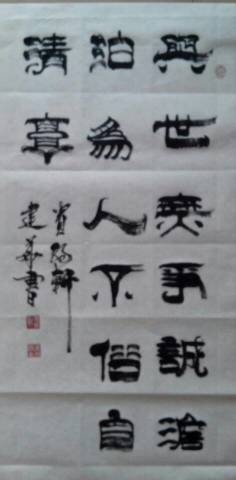 與世無事誠澹
泊為人不俗自
清
陽軒
建華書